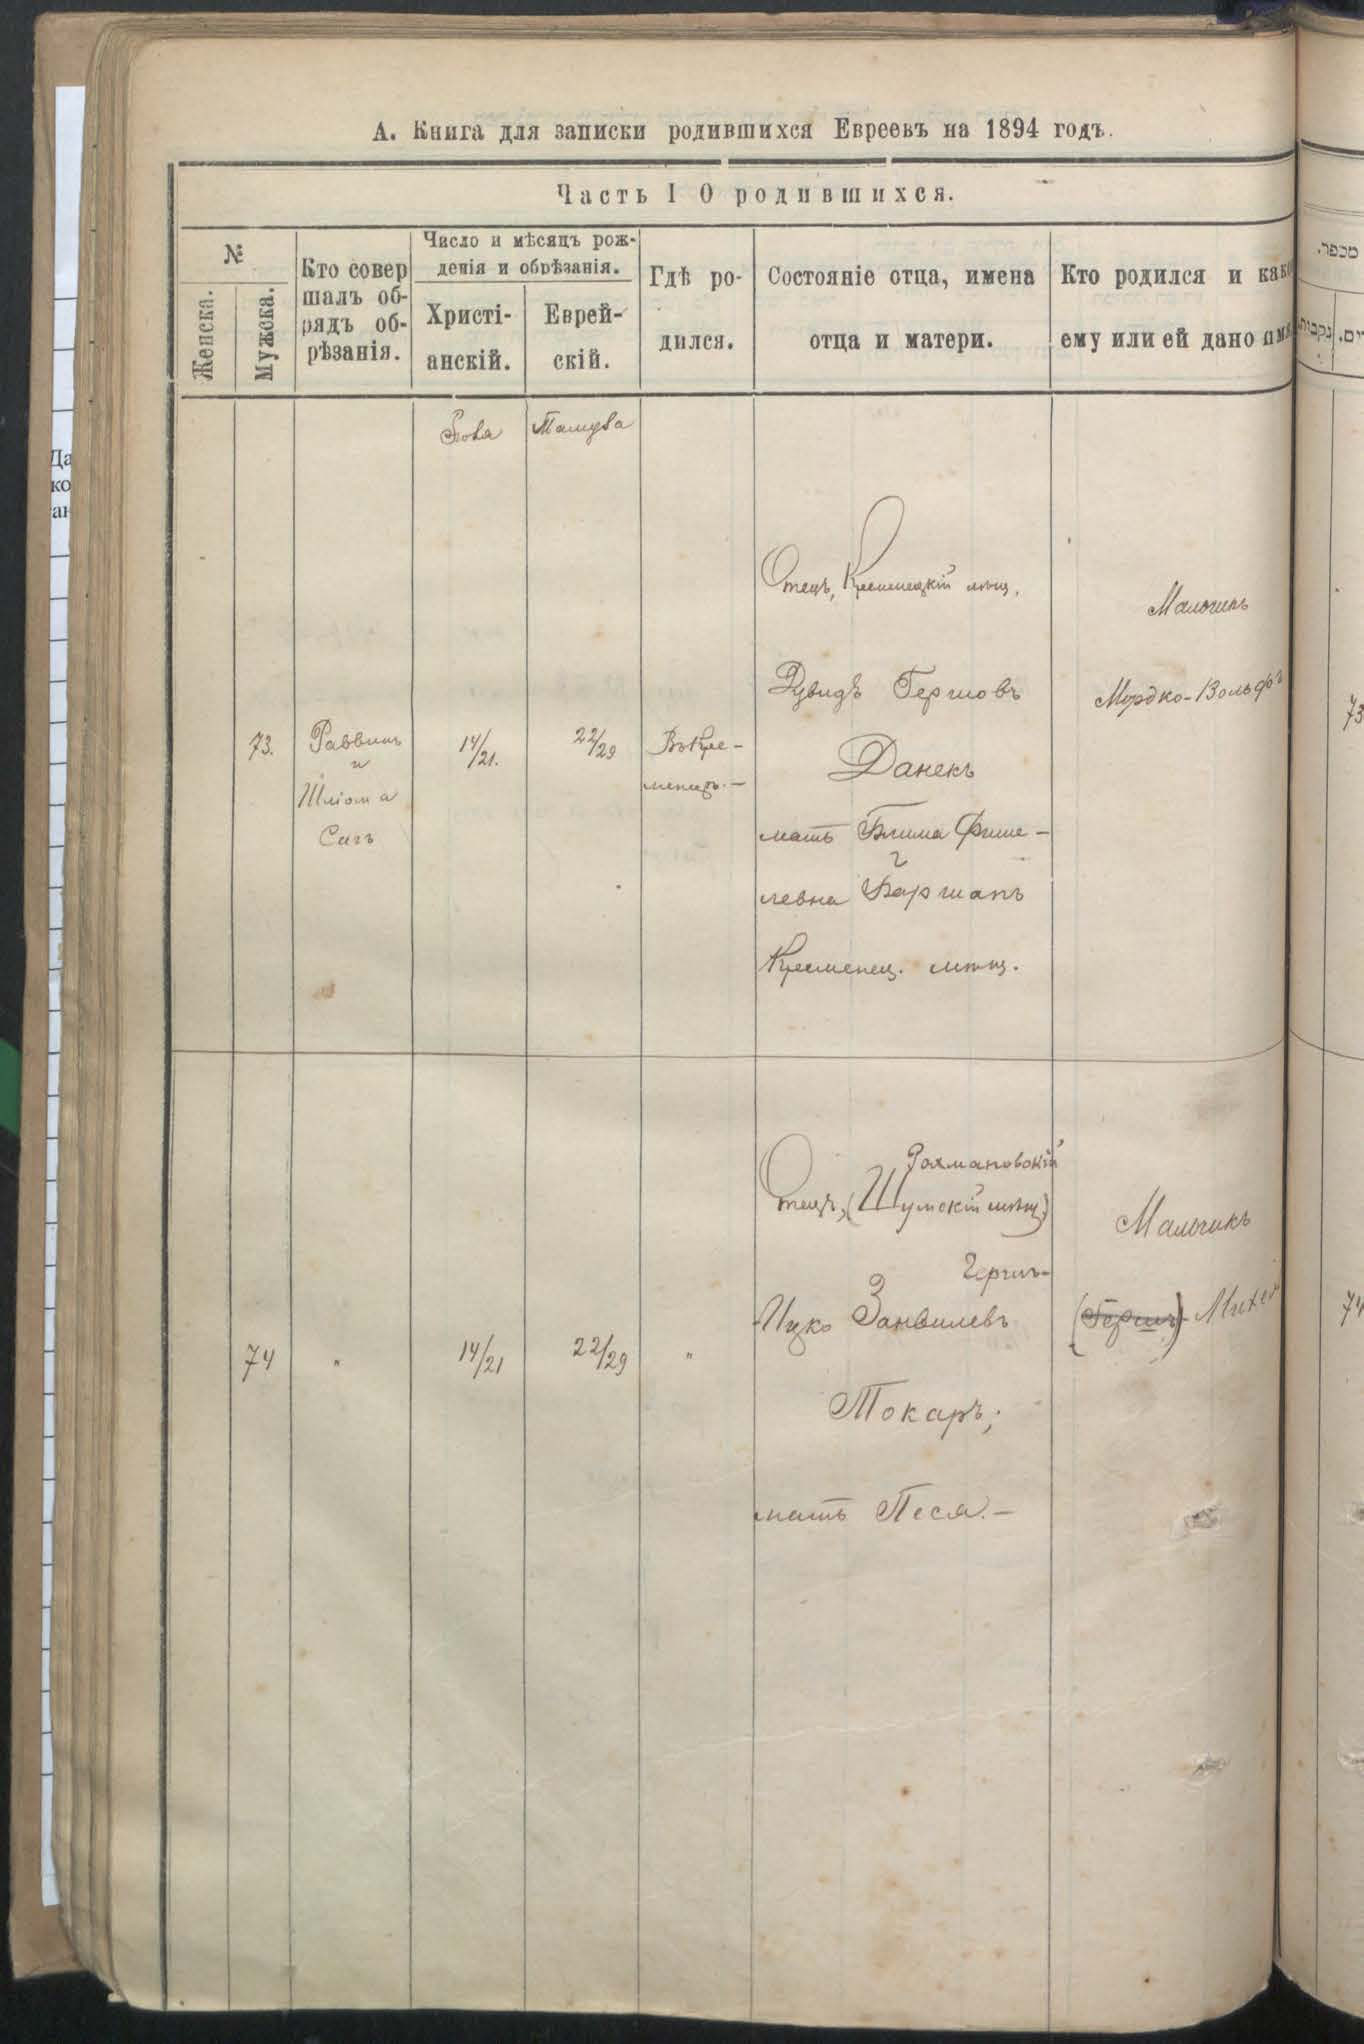 А. Книга для записки родившихся Евреевъ на 1894 годъ.
Часть I О родившихся.
№
Женска.
Мужска.
Кто совер
шалъ об-
рядъ об-
рѣзанія.
Число и мѣсяцъ рож-
денія и обрѣзанія.
Христі-
анскій.
Еврей-
скій.
Гдѣ ро-
дился.
Состояніе отца, имена
отца и матери.
Кто родился и како
ему или ей дано имя
Тамува
73.
Раввинъ
и
Шліома
Сигъ
14/21.
22/29
Въ Кре-
менцѣ.-
Отецъ, Кременецкій мѣщ.
Дувидъ Гершовъ
Данекъ
мать Блима Фише-
левна Баршапъ
Кременец. мѣщ.
Мальчикъ
Мордко-Вольфъ
74
"
14/21
22/29
"
Рохмановскій
Отецъ, (Шумскій мѣщ.)
Гершъ-
Ицко Занвилевъ
Токаръ;
мать Песя.-
Мальчикъ
(Гершъ) Михел
73
74
מכפר.
נקבות.